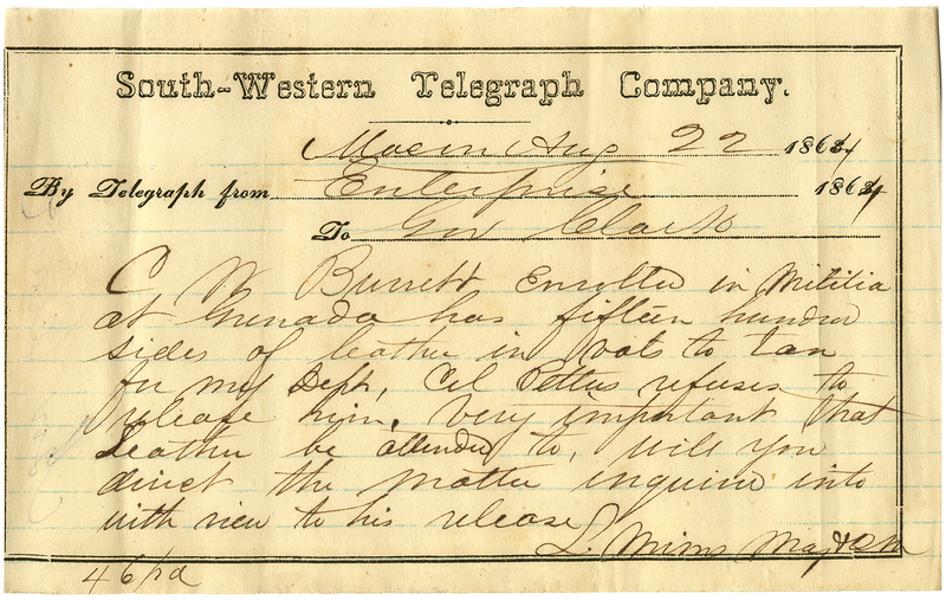 South-Western Telegraph Company.
Macon Aug 22 1864
By Telegraph from Enterprise 1864
To Gov Clark
C W Burrett Enrolled in Militia
at Grenada has fifteen hundred
sides of leather in vats to tan
for my Dept, Col Pettus refuses to
release him, Very important that
Leather be attended to, will you
direct the matter inquired into
with view to his release
L. Mims Maj & QM
46 pd